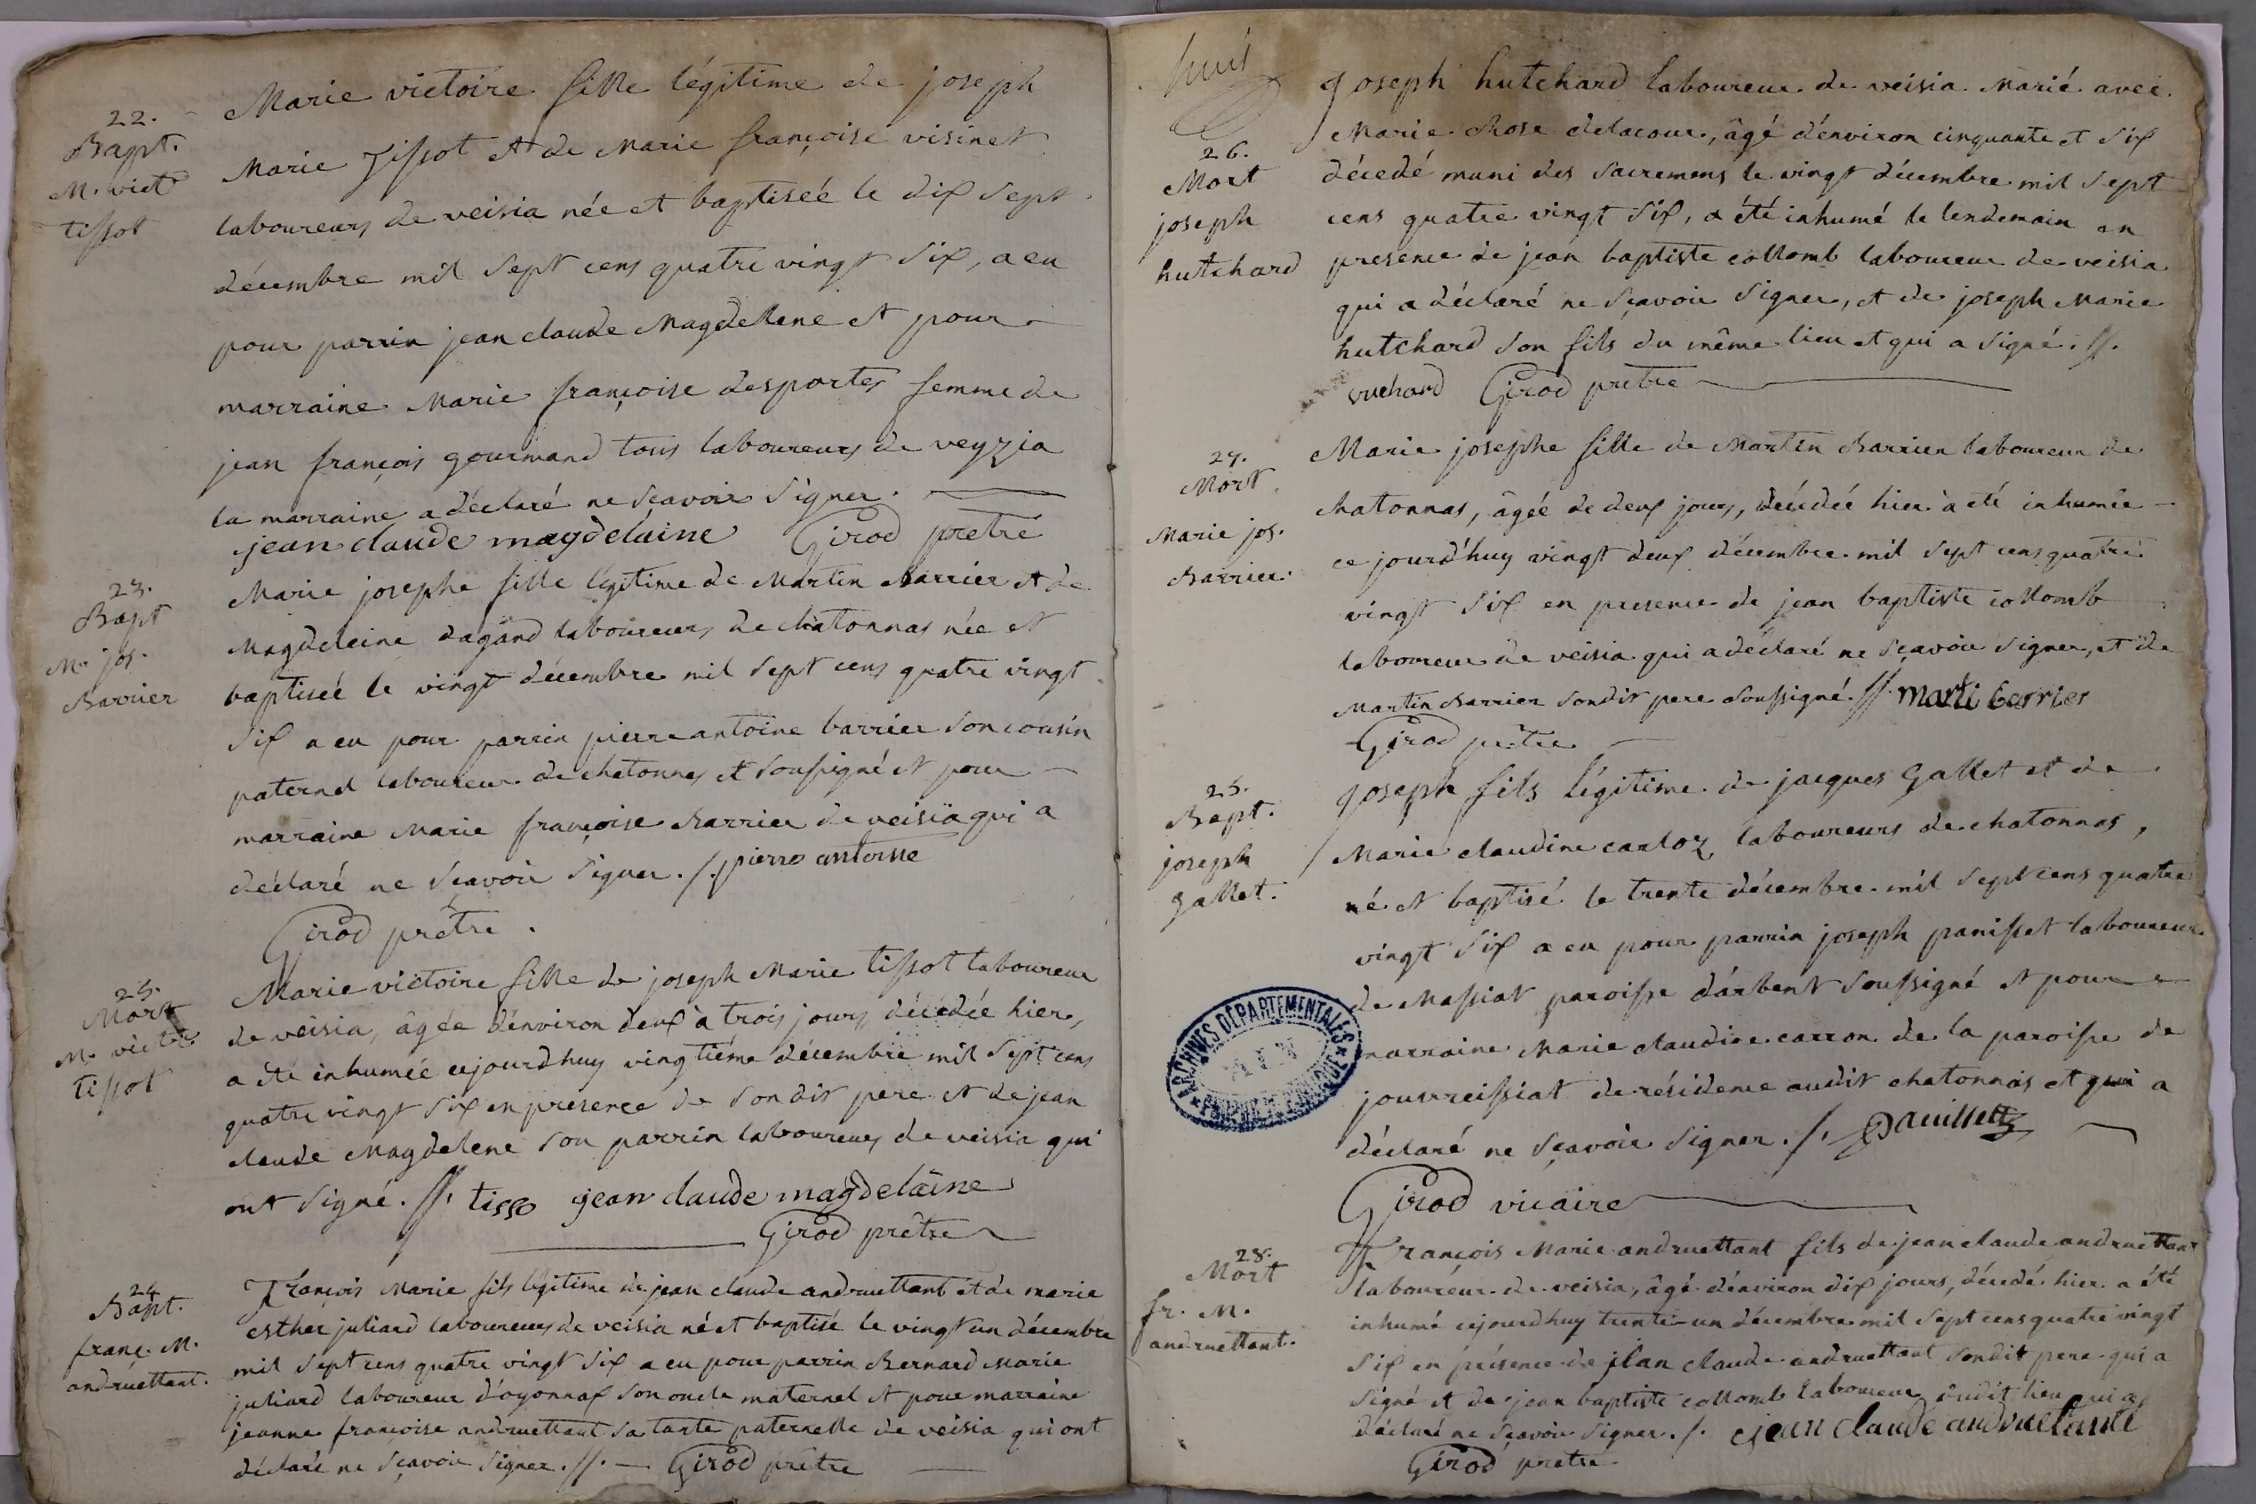 22.
Bapt.
M. vict
tissot
Marie victoire fille légitime de joseph
Marie Tissot et de Marie françoise visinet
laboureurs de veisia née et baptiseé le dix sept
décembre mil sept cens quatre vingt six, a eu
pour parrin jean claude Magdelene et pour
marraine Marie françoise desportes femme de
jean françois gourmand tous laboureurs de veyzia
la marraine a déclaré ne sçavoir signer.
jean claude magdelaine Girod prêtre
23.
Bapt
M. jos.
Barrier
Marie josephe fille légitime de Martin Barrier et de
Magdeleine dagand laboureurs de chatonnas née et
baptiseé le vingt décembre mil sept cens quatre vingt
six a eu pour parrin pierre antoine barrier son cousin
paternel laboureur de chatonnas et soussigné et pour
marraine Marie françoise Barrier de veisia qui a
déclaré ne sçavoir signer. /. pierre antoine
Girod prêtre.
25.
Mort
M. victre
tissot
Marie victoire fille de joseph Marie tissot laboureur
de veisia, âgée d'environ deux à trois jours, décedée hier,
a été inhumée cejourdhuy vingtiéme décembre mil sept cens
quatre vingt six en presence de son dit pere et de jean
claude Magdelene son parrin laboureurs de veisia qui
ont signé. //. tisso jean claude magdelaine
Girod prêtre
24
Bapt.
franç. M.
andruettant.
François Marie fils légitime de jean claude andruettant et de marie
esther juliard laboureurs de veisia né et baptisé le vingt un décembre
mil sept cens quatre vingt six a eu pour parrin Bernard Marie
juliard laboureur d'oyonnax son oncle maternel et pour marraine
jeanne françoise andruettant sa tante paternelle de veisia qui ont
déclaré ne sçavoir signer. //. Girod prêtre
huit
26.
Mort
joseph
hutchard
Joseph hutchard laboureur de veisia marié avec
Marie Rose delacour, âgé d'environ cinquante et six
décedé muni des sacremens le vingt décembre mil sept
cens quatre vingt six, a été inhumé le lendemain en
presence de jean baptiste collomb laboureur de veisia
qui a déclaré ne sçavoir signer, et de joseph Marie
hutchard son fils du même lieu et qui a signé. //.
vuchard Girod prêtre
27.
Mort
Marie jos.
Barrier.
Marie josephe fille de Martin Barrier laboureur de
chatonnas, âgée de deux jours, décedée hier a été inhumée
ce jourd'huy vingt deux décembre mil sept cens quatre
vingt six en presence de jean baptiste collomb
laboureur de veisia qui a déclaré ne sçavoir signer, et de
Martin Barrier sondit pere soussigné. //. marti barrier
Girod prêtre
25.
Bapt.
joseph
gallet.
Joseph fils légitime de jacques Gallet et de
Marie claudine carloz laboureurs de chatonnas,
né et baptisé le trente décembre mil sept cens quatre
vingt six a eu pour parrin joseph panisset laboureur
de Massiat paroisse d'arbent soussigné et pour
marraine Marie claudine carron de la paroisse de
jouvreissiat de résidence audit chatonnas et qui a
déclaré ne sçavoir signer. /. Panissett
Girod vicaire
ARCHIVES DÉPARTEMENTALES
28.
Mort
fr. M.
andruettant.
François Marie andruettant fils de jean claude andruettant
laboureur de veisia, âgé d'environ dix jours, décedé hier a été
inhumé cejourdhuy trente-un décembre mil sept cens quatre vingt
six en présence de jean claude andruettant sondit pere qui a
signé et de jean baptiste collomb laboureur dudit lieu qui a
déclaré ne sçavoir signer. /. jean claude andruettant
Girod prêtre